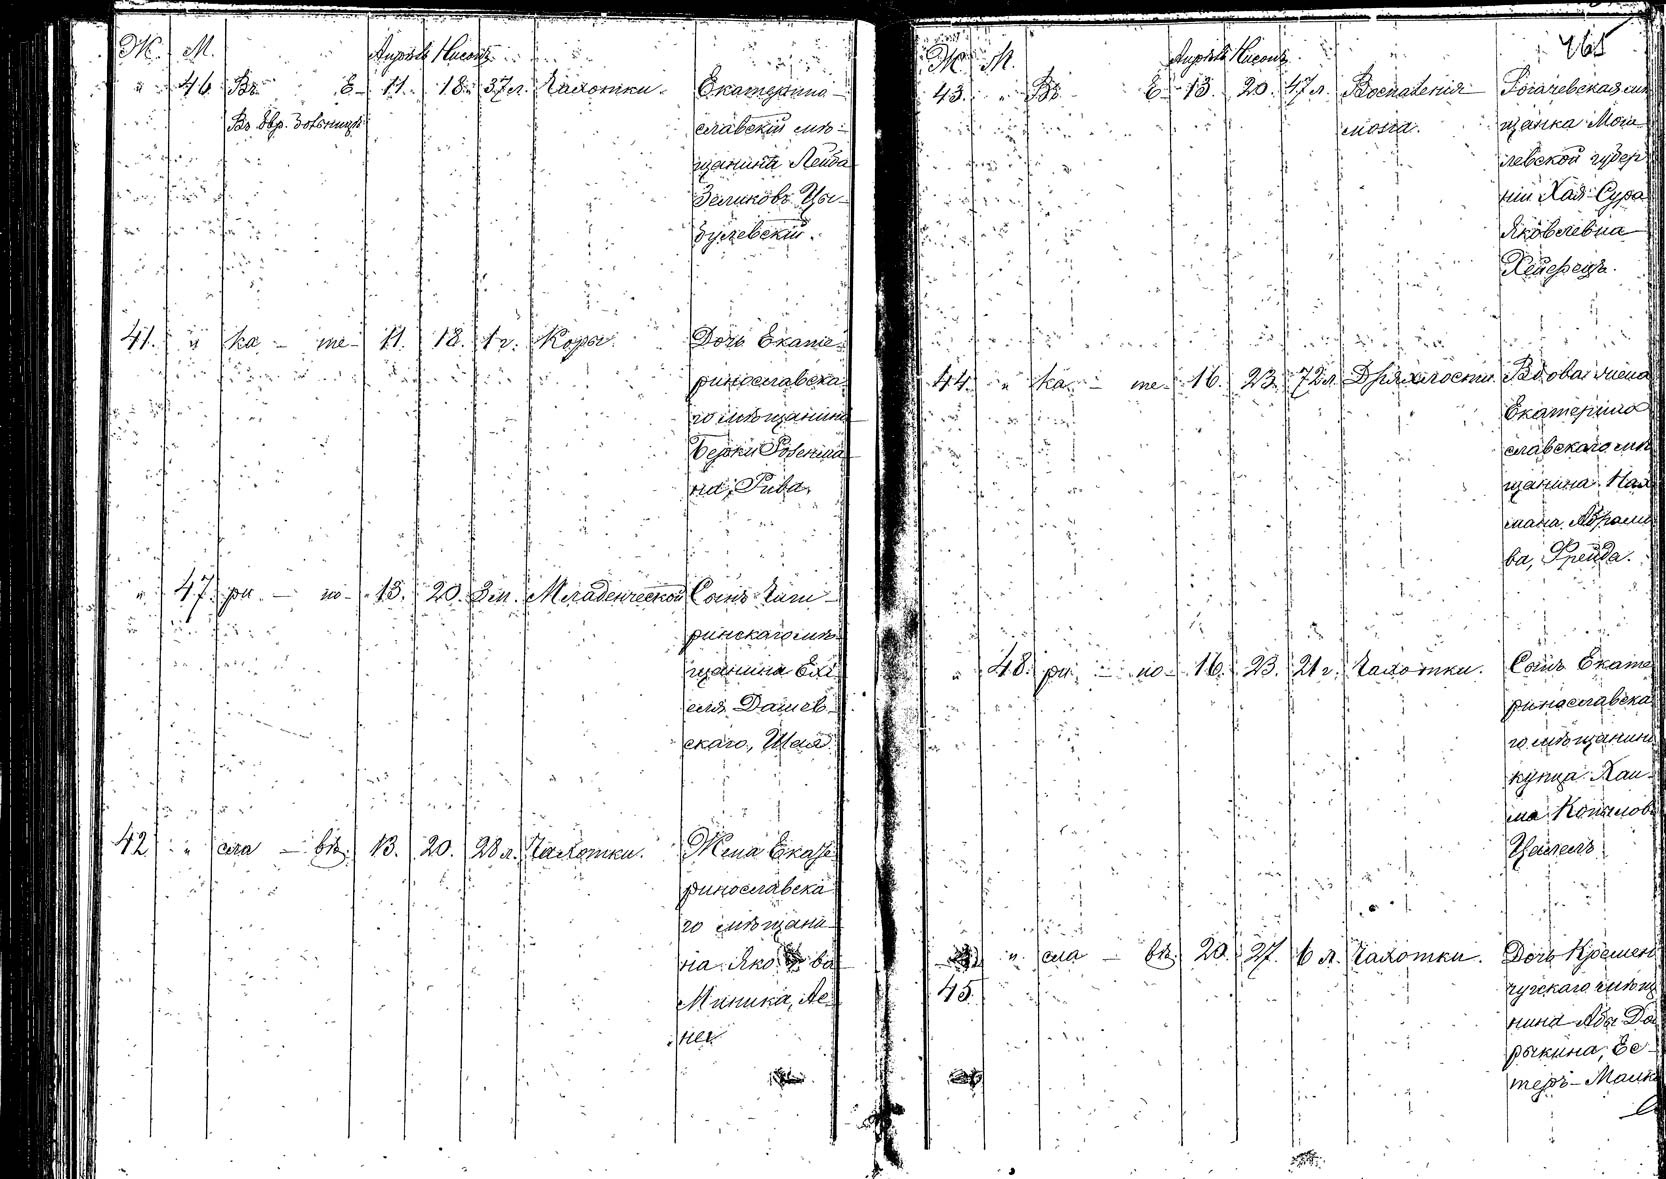 Ж. М. Апрѣль Нисонъ
" 46 Въ Е- 11. 18. 37 л. Чахотки. Екатерино-
Въ Евр. больницѣ славскій мѣ-
щанинъ Лейба
Зеликовъ Цы-
булевскій.
41. " ка - те- 11. 18. 1 г. Коры. Дочь Екате-
ринославска-
го мѣщанина
Берки
на, Рива.
" 47. ри - но- 13. 20. 3 м. Младенческой Сынъ Чиги-
ринскаго мѣ-
щанина Ехі-
еля Дашев-
скаго, Шая
42 " сла - вѣ. 13. 20. 28 л. Чахотки. Жена Екате-
ринославска-
го мѣщани-
на Яко ва
Миника,
465
Ж. М. Апрѣль Нисонъ
43. " Въ Е- 13. 20. 47 л. Воспаленія Рогачевская мѣ
мозга. щанка Моги
левской губер
ніи Хая-Сура
Яковлевна
44. " ка - те- 16. 23. 72 л. Дряхлости. Вдова жена
Екатерино
славскаго мѣ
щанина Нах
мана Абрамо
ва, Фрейда.
" 48. ри - но- 16. 23. 21 г. Чахотки. Сынъ Екате
ринославска
го мѣщанина
купца Хаи-
ма
" сла - вѣ. 20. 27. 6 л. Чахотки. Дочь Кремен
45. чугскаго мѣщ
нина Абы До
рыкина, Ес-
теръ-Малка